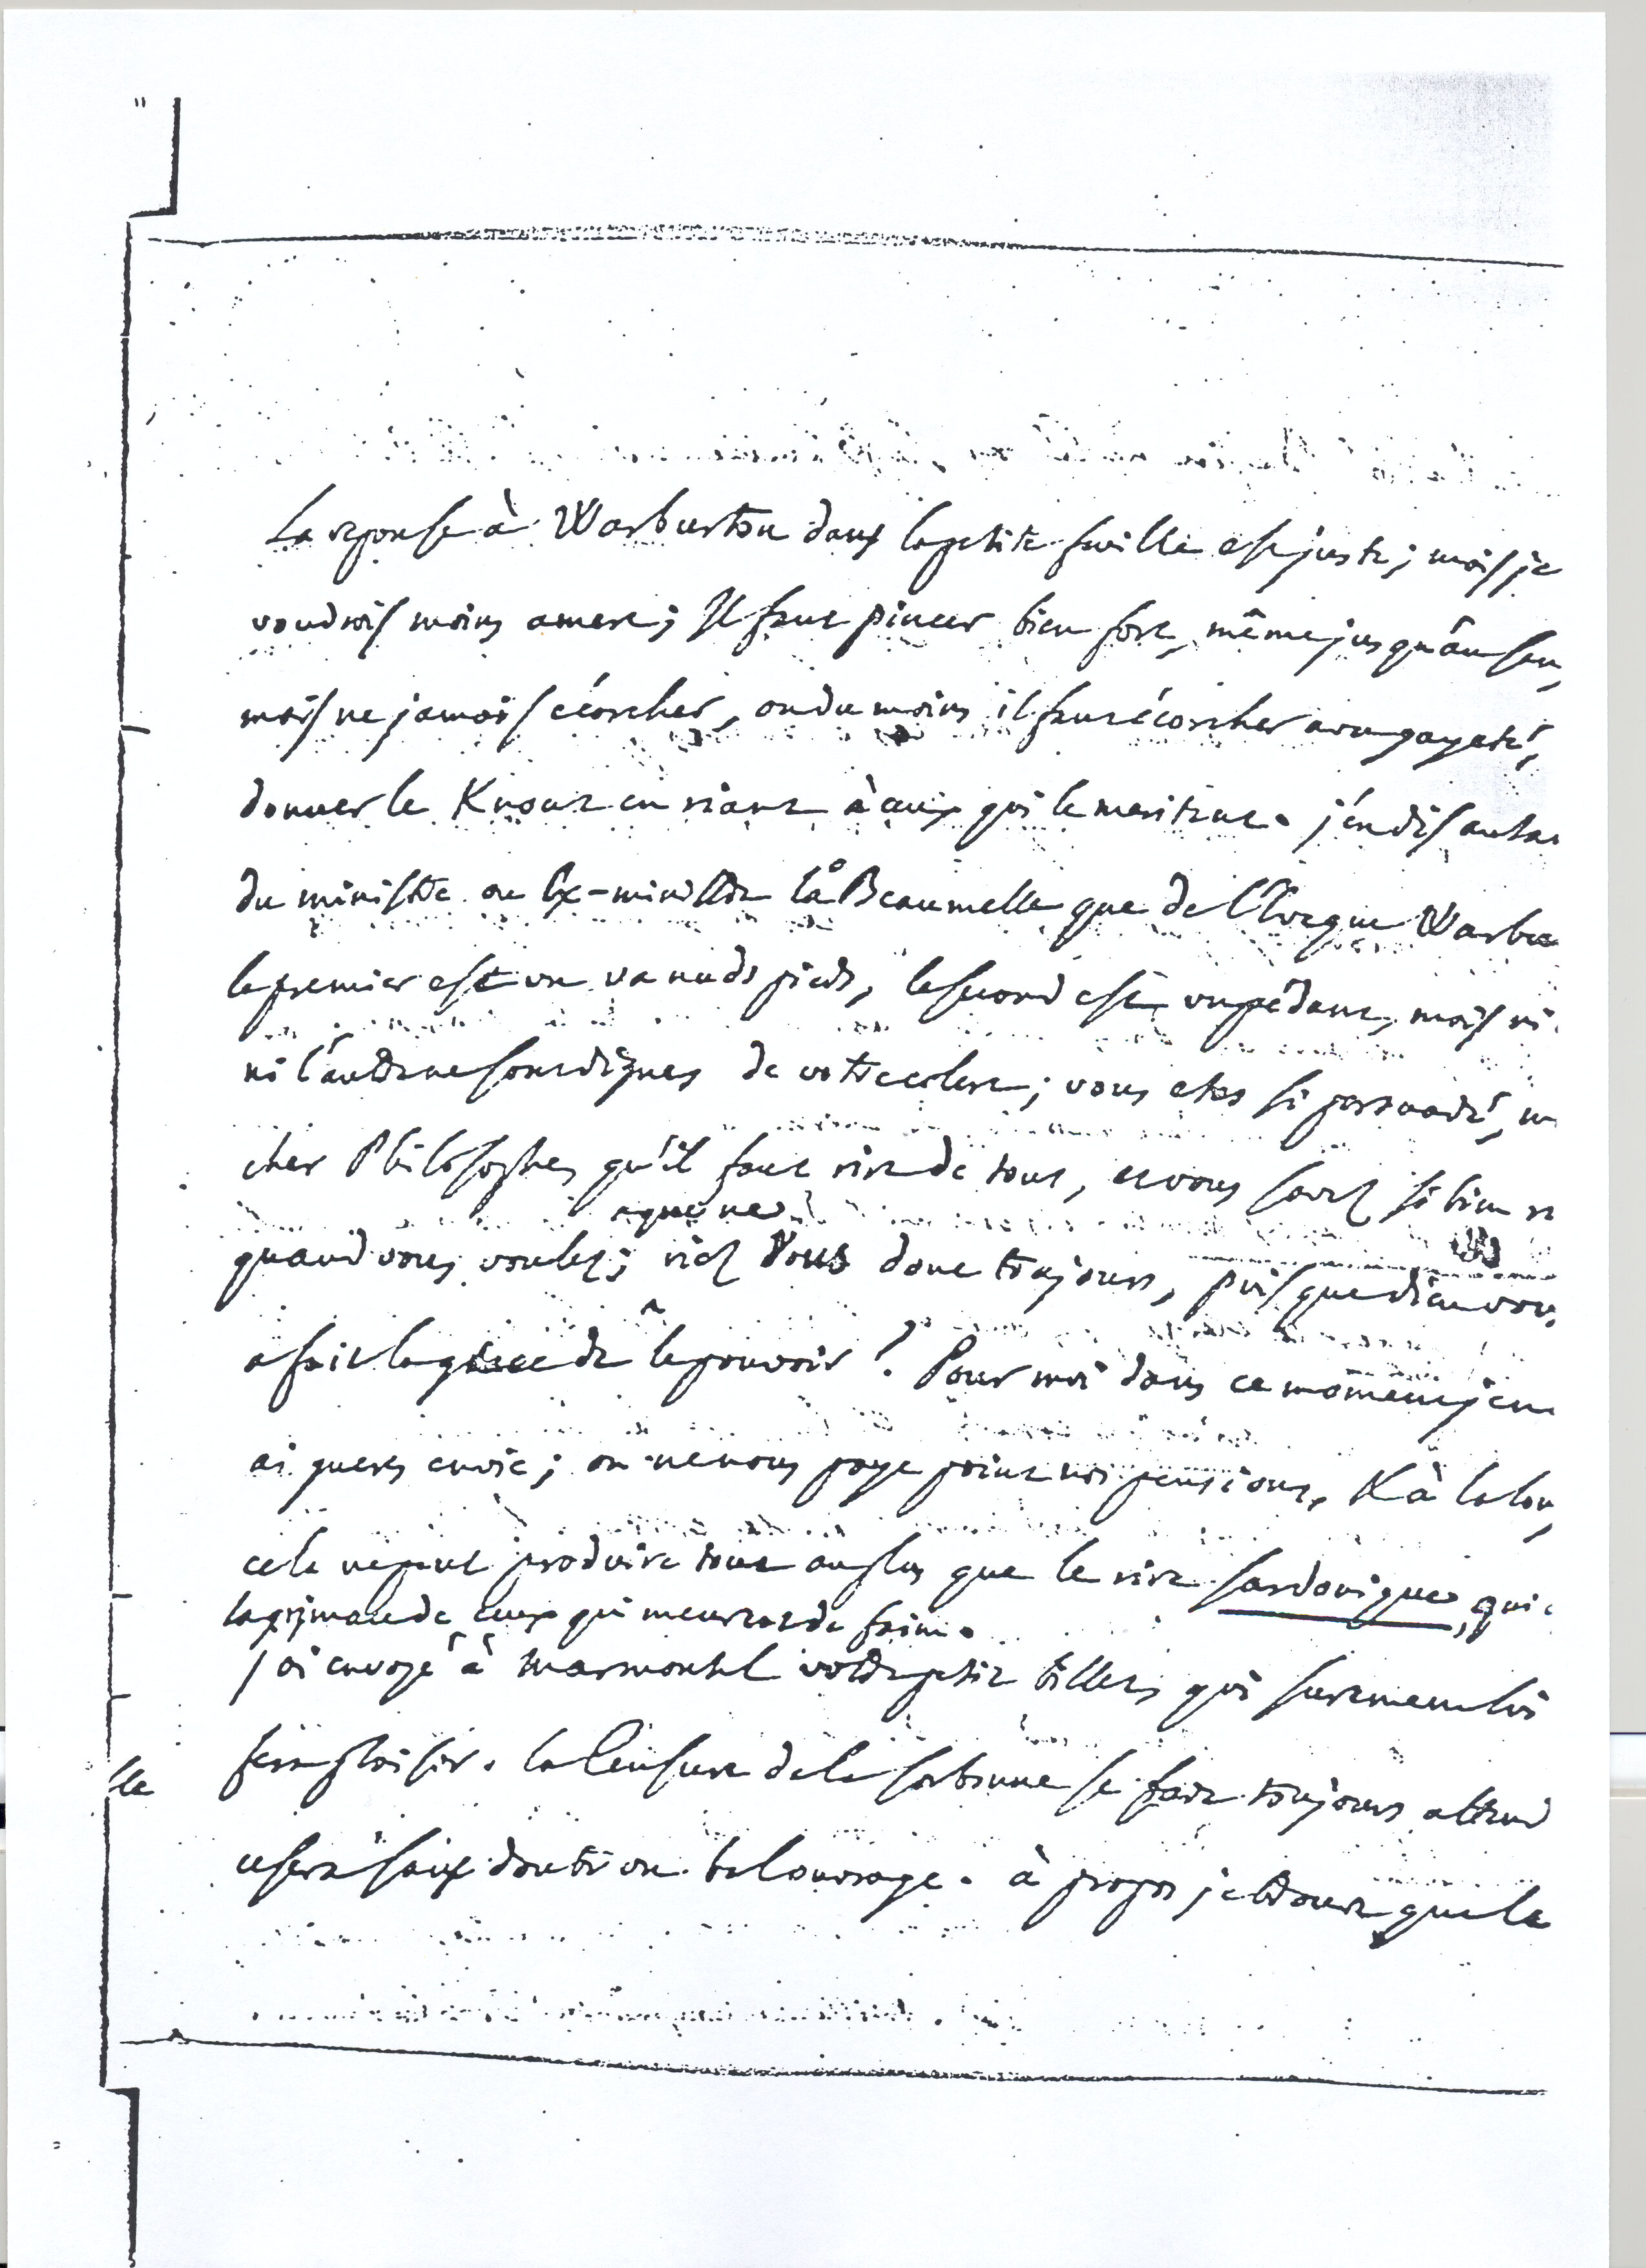 La reponse à Warburton dans la petite feuille est juste; mais je
voudrois moins amere; Il faut pincer bien fort, même jusqu'au san
mais ne jamais écorcher, ou du moins il faut écorcher avec gayeté,
donner le Knout en riant à ceux qui le meritent. j'en dis autan
du ministre ou Ex-ministre la Beaumelle que de l'Eveque Warbu
le premier est un va nuds pieds, le second est un pédant, mais ni
ni l'autre ne sont dignes de votre colere; vous etes si persuadé, m
cher Philosophe, qu'il faut rire de tout, et vous savez si bien ri
quand vous voulez; que ne
riez vous donc toujours, puisque dieu vou
a fait la grace de le pouvoir! Pour moi dans ce moment je n
ai gueres envie; on ne nous paye point nos pensions, & à la lon
cela ne peut produire tout au plus que le rire sardonique, qui e
la grimace de ceux qui meurent de faim.
j'ai envoyé à Marmontel votre petit billet, qui surement lui
fera plaisir. la Censure de la sorbonne se fait toujours attend
ce sera sans doute un bel ouvrage. à propos je trouve que le
le